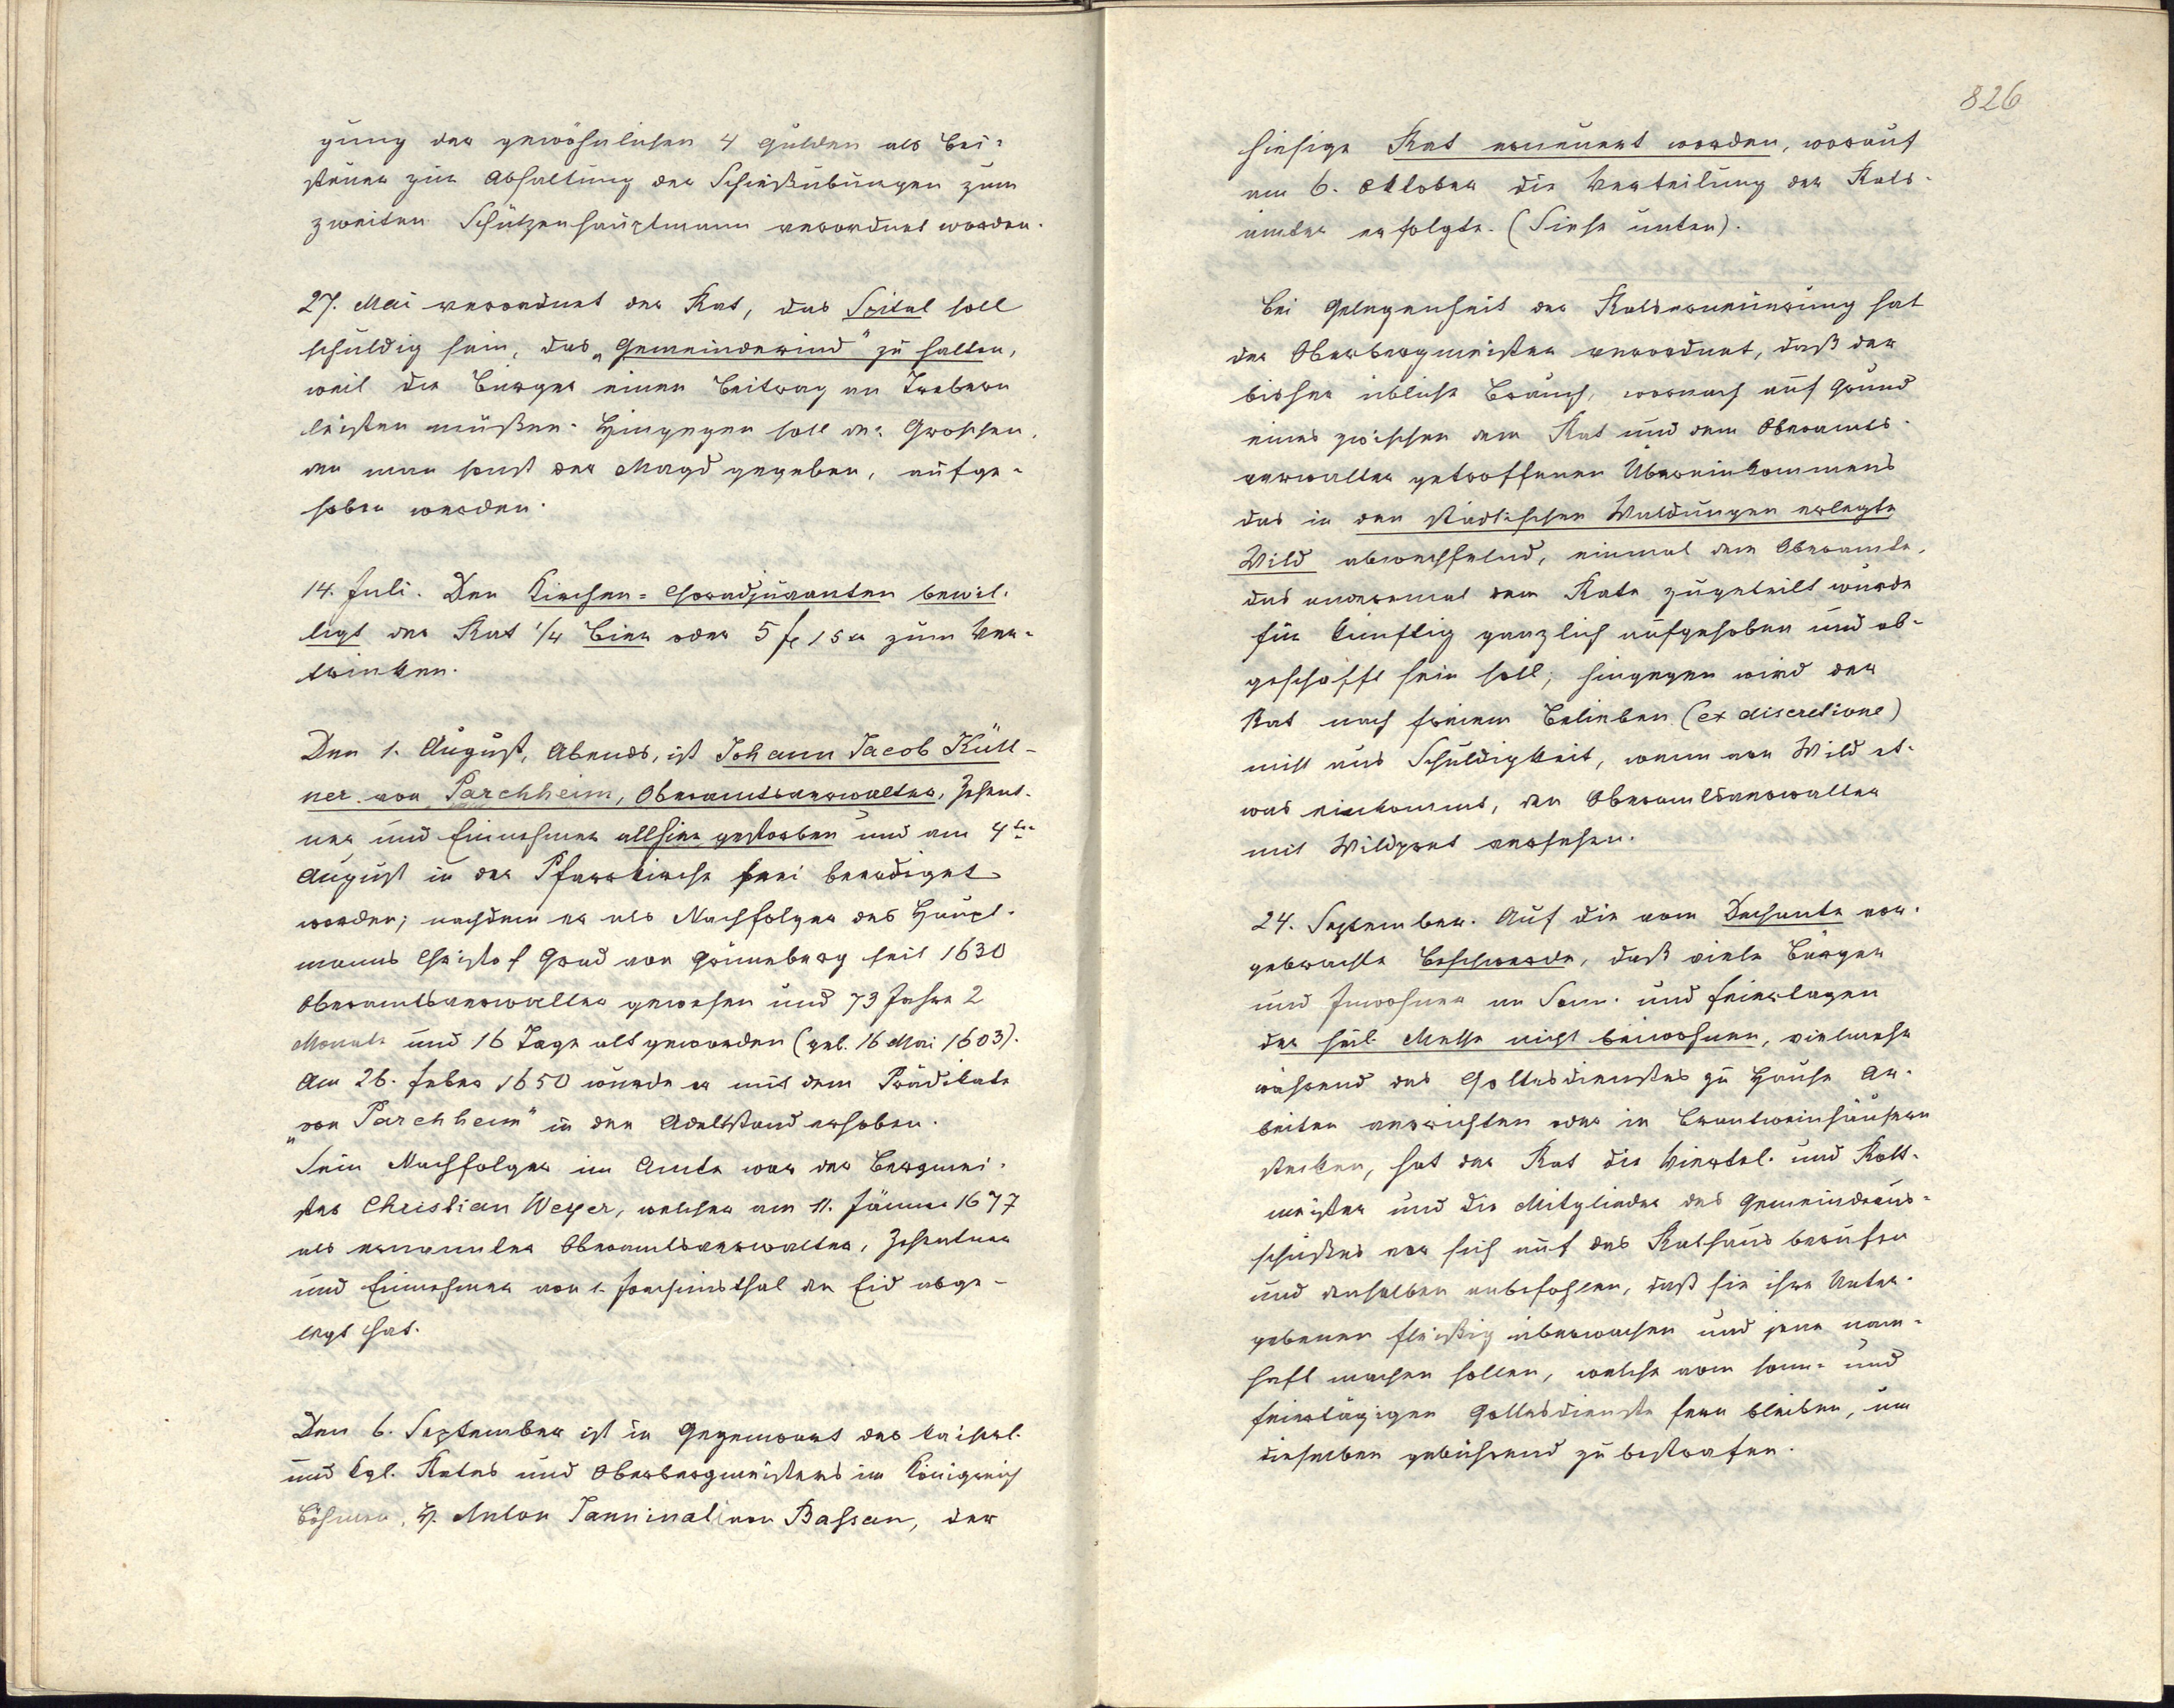 gung der gewöhnlichen 4 Gulden als Bei-
steuer zur Abhaltung der Schießübungen zum
zweiten Schützenhauptmann verordnet worden.
27. Mai verordnet der Rat, das Spital soll
schuldig sein, das „Gemeinderind" zu halten,
weil die Bürger einen Beitrag an Trebern
leisten müßen. Hingegen soll der Groschen,
den man sonst der Magd gegeben, aufge-
hoben werden.
14. Juli. Den Kirchen-Choradjuvanten bewil-
ligt der Rat 1/4 Bier oder 5 fl 15 x zum Ver-
trinken.
Den 1. August, Abends, ist Johann Jacob Kütt-
ner von Parchheim, Oberamtsverwalter, Zehent-
ner und Einnehmer allhier gestorben und am 4ten
August in der Pfarrkirche frei beerdiget
worden; nachdem er als Nachfolger des Haupt-
manns Christof Grad von Grüneberg seit 1630
Oberamtsverwalter gewesen und 73 Jahre 2
Monate und 16 Tage alt geworden (geb. 16 Mai 1603).
Am 26. Feber 1650 wurde er mit dem Prädikate
„von Parchheim" in den Adelsstand erhoben.
Sein Nachfolger im Amte war der Bergmei-
ster Christian Weyer, welcher am 11. Jänner 1677
als ernannter Oberamtsverwalter, Zehentner
und Einnehmer von St. Joachimsthal den Eid abge-
legt hat.
Den 6. September ist in Gegenwart des kaiserl.
und kgl. Rates und Oberbergmeisters im Königreich
Böhmen, H. Anton Janninali von Bassan, der
826
hiesige Rat erneuert worden, worauf
am 6. Oktober die Verteilung der Rats-
ämter erfolgte. (Siehe unten).
Bei Gelegenheit der Ratserneuerung hat
der Oberbergmeister verordnet, daß der
bisher übliche Brauch, wornach auf Grund
eines zwischen dem Rat und dem Oberamts-
verwalter getroffenen Übereinkommens
das in den städtischen Waldungen erlegte
Wild abwechselnd, einmal dem Oberamte,
das anderemal dem Rate zugeteilt wurde
für künftig gänzlich aufgehoben und ab-
geschafft sein soll; hingegen wird der
Rat nach freiem Belieben (ex discretione)
nicht aus Schuldigkeit, wenn von Wild et-
was einkommt, den Oberamtsverwalter
mit Wildpret versehen.
24. September. Auf die vom Dechante vor-
gebrachte Beschwerde, daß viele Bürger
und Inwohner an Sonn- und Feiertagen
der heil. Messe nicht beiwohnen, vielmehr
während des Gottesdienstes zu Hause Ar-
beiten verrichten oder in Brantweinhäusern
stecken, hat der Rat die Viertel- und Rott-
meister und die Mitglieder des Gemeindeaus-
schußes vor sich auf das Rathaus berufen
und denselben anbefohlen, daß sie ihre Unter-
gebenen fleißig überwachen und jene nam-
haft machen sollen, welche vom sonn- und
feiertägigen Gottesdienste fern bleiben, um
dieselben gebührend zu bestrafen.